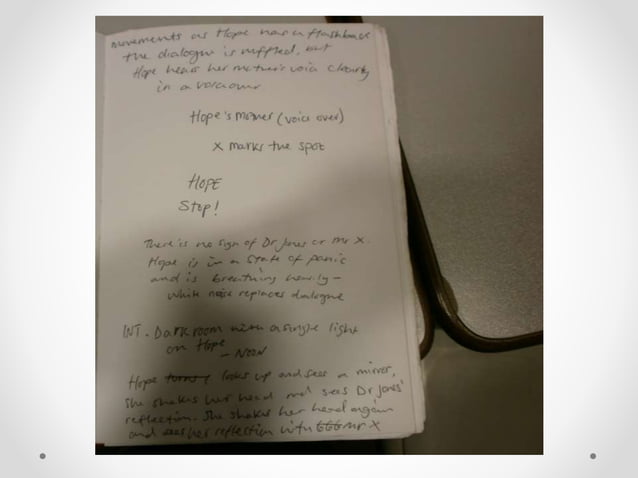 movements as Hope has a flashback
the dialogue is muffled, but
Hope hears her mother's voice clearly
in a voiceover
Hope's Mother (voice over)
X marks the spot
HOPE
Stop!
There is no sign of Dr Jones or Mr X.
Hope is in a state of panic
and is breathing heavily -
white noise replaces dialogue
INT. Dark room with a single light
on Hope
- NOON
Hope turns / looks up and sees a mirror,
she shakes her head and sees Dr Jones'
reflection. She shakes her head again
and sees her reflection with Mr X